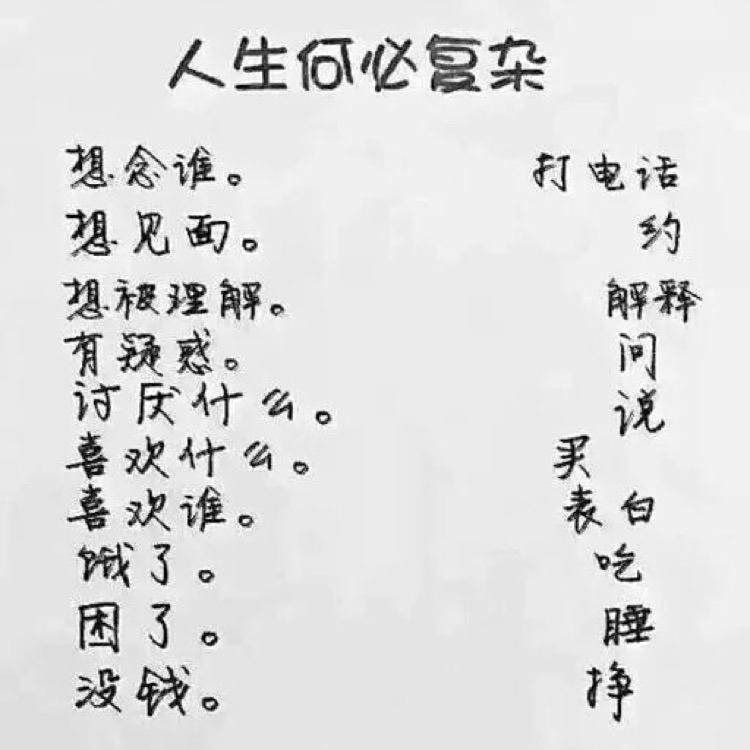 人生何必复杂
想念谁。 打电话
想见面。 约
想被理解。 解释
有疑惑。 问
讨厌什么。 说
喜欢什么。 买
喜欢谁。 表白
饿了。 吃
困了。 睡
没钱。 挣